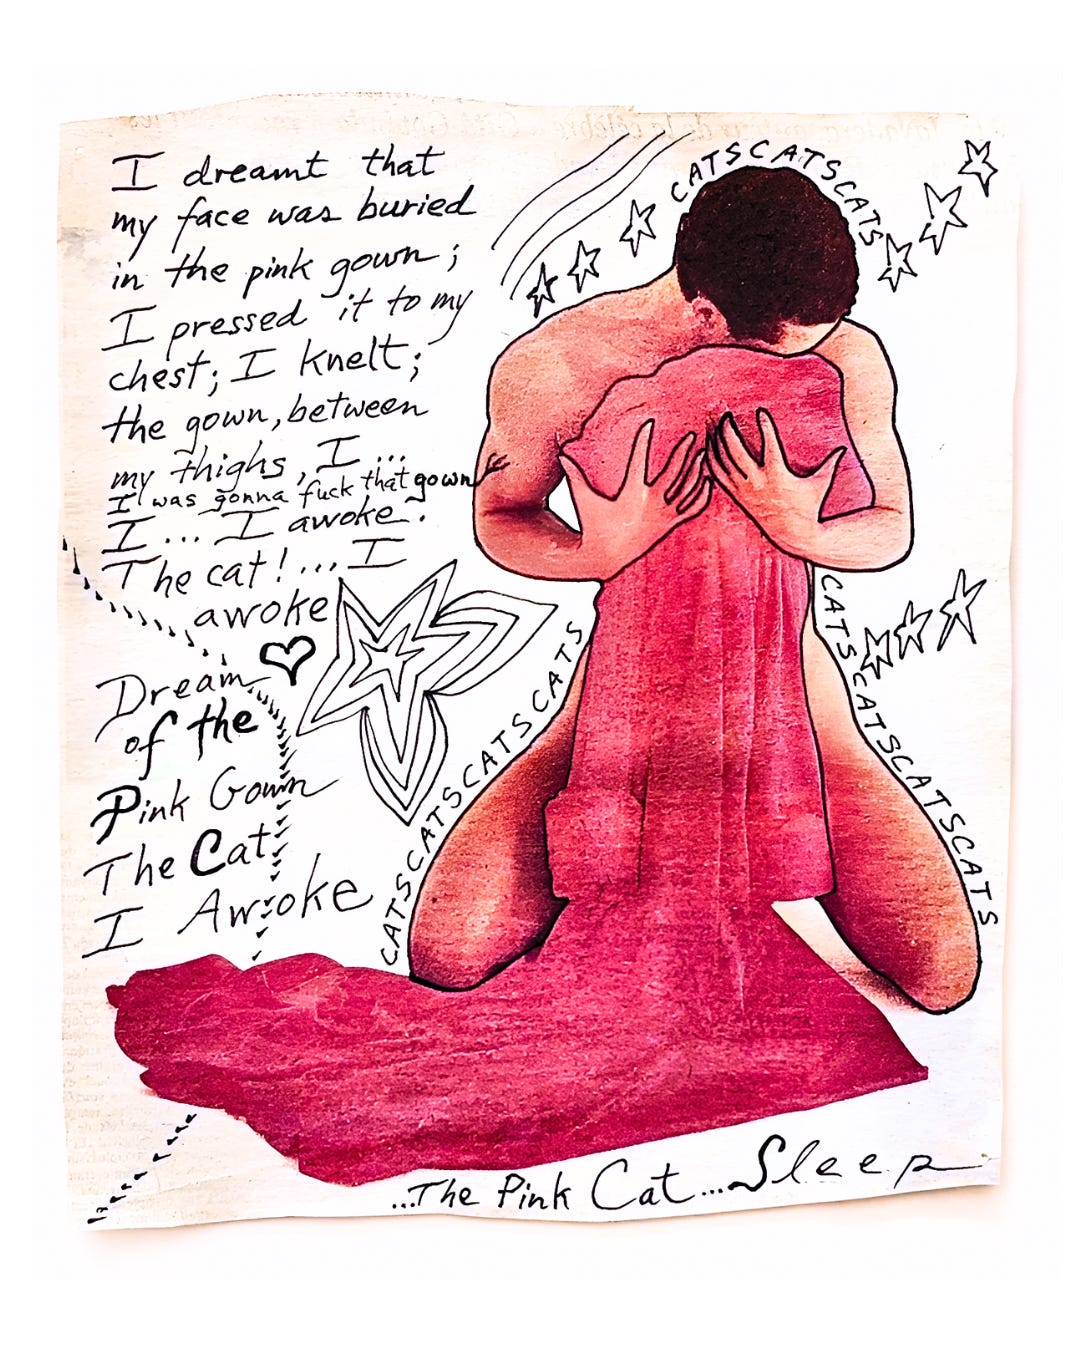 I dreamt that
my face was buried
in the pink gown;
I pressed it to my
chest; I knelt;
the gown, between
my thighs, I...
I was gonna fuck that gown
I... I awoke.
The cat!... I
awoke
Dream
of the
Pink Gown
The Cat
I Awoke
CATSCATSCATS
CATSCATSCATSCATSCATS
CATSCATSCATSCATSCATS
...The Pink Cat...Sleep